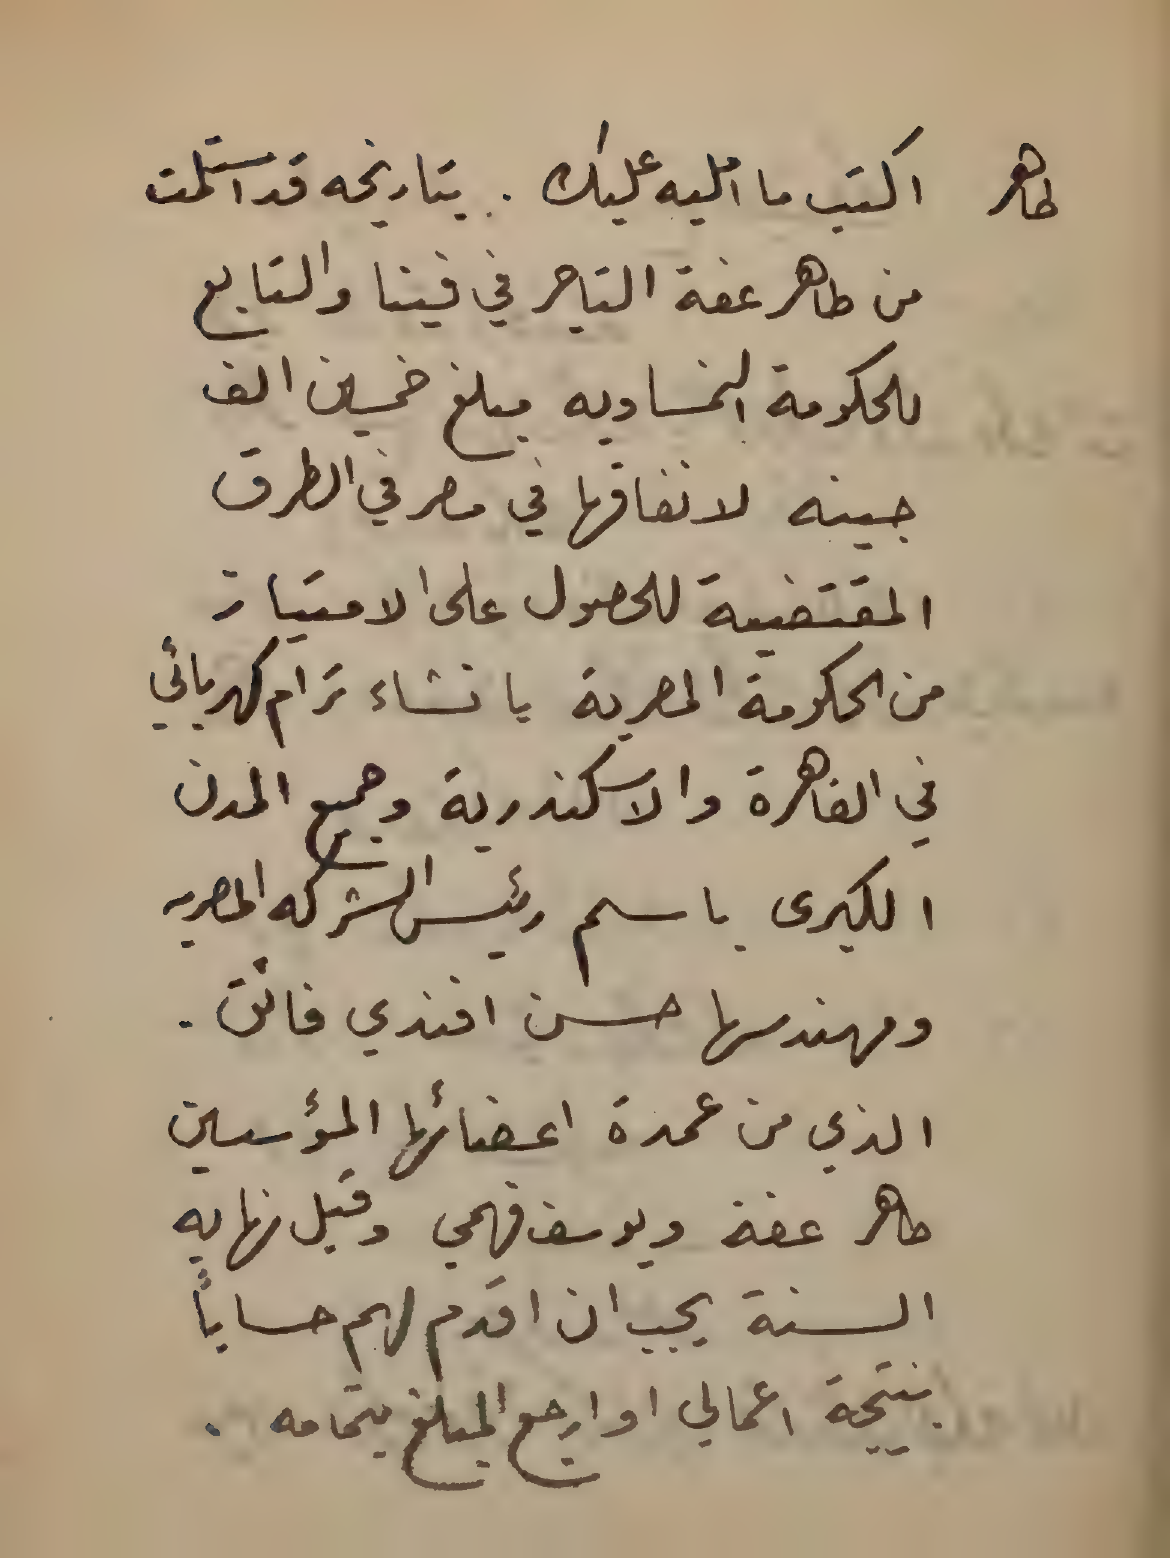 طاهر اكتب ما امليه عليك . بتاريخه قد استلمت
من طاهر عفة التاجر في فينا والتابع
للحكومة النمساويه مبلغ خمسين الف
جينه لانفاقها في مصر في الطرق
المقتضية للحصول على الامتياز
من الحكومة المصرية بانشاء ترام كهربائي
في القاهرة والاسكندرية وجميع المدن
الكبرى باسم رئيس الشركه المصريه
ومهندسها حسن افندي فائق .
الذي من عمدة اعضائها المؤسسين
طاهر عفة ويوسف فهمي وقبل نهايه
السنة يجب ان اقدم لهم حساباً
بنتيجة اعمالي او ارجع المبلغ بتمامه .